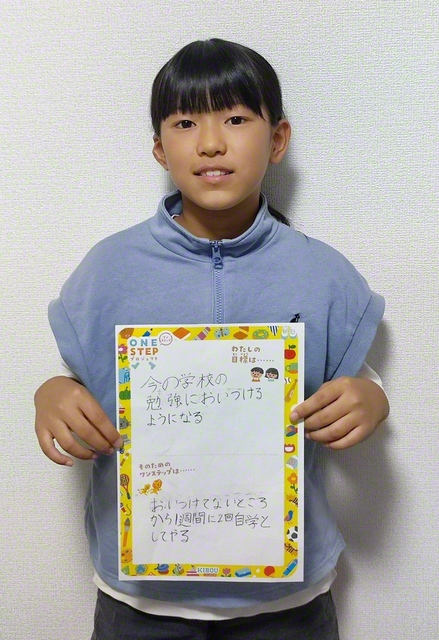 ONE
STEP
プロジェクト
わたしの
目標は……
今の学校の
勉強においつける
ようになる
そのための
ワンステップは……
おいつけてないところ
から1週間に2回自学と
してやる
KIBOU